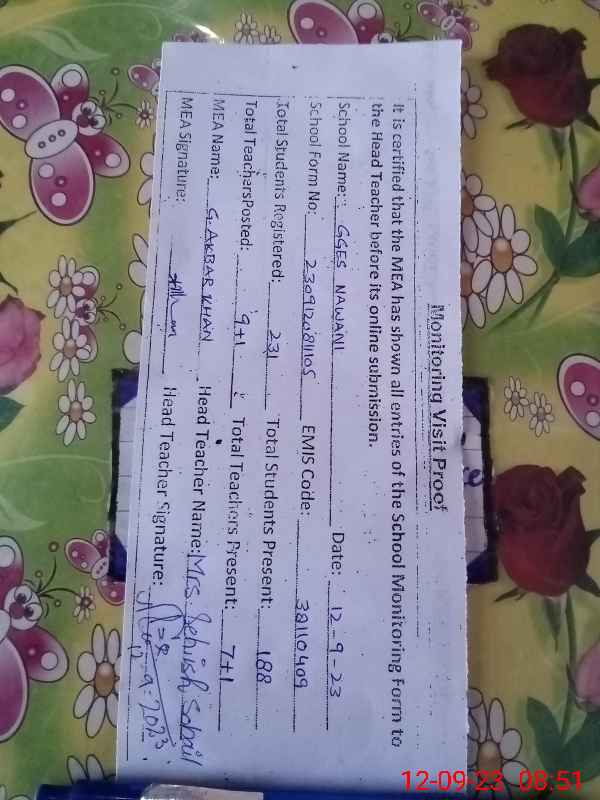 Monitoring Visit Proof
It is certified that the MEA has shown all entries of the School Monitoring Form to
the Head Teacher before its online submission.
School Name: GGES NAWANI Date: 12-9-23
School Form No: 230912081105 EMIS Code: 32110409
Total Students Registered: 231 Total Students Present: 188
Total TeachersPosted: 9+1 Total Teachers Present: 7+1
MEA Name: G.AKBAR KHAN Head Teacher Name: Mrs Sehrish Sohail
MEA Signature: Head Teacher Signature:
12-9-2023
12-09-23 08:51